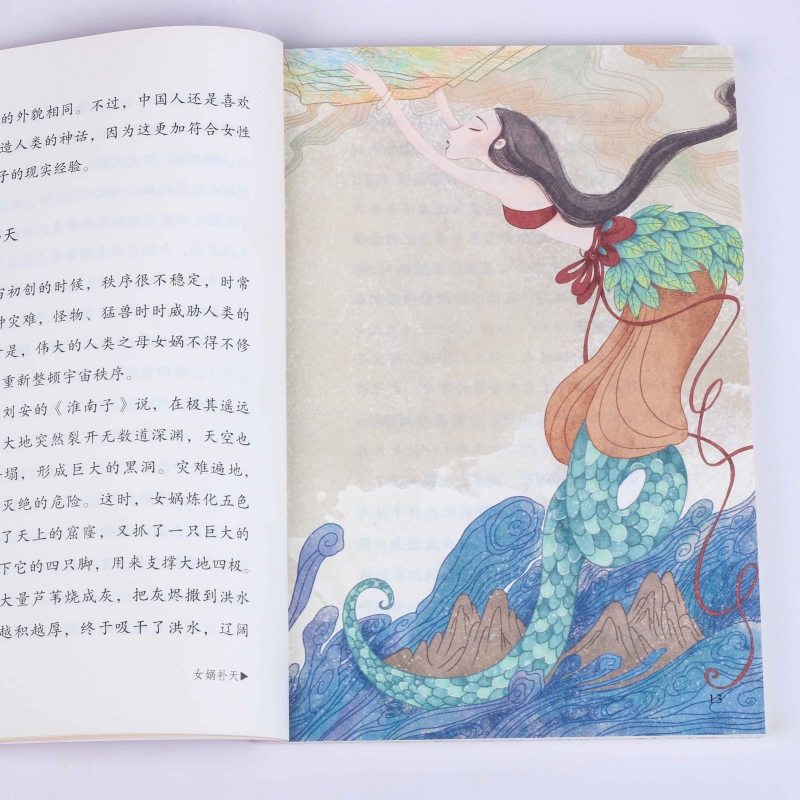 的外貌相同。不过,中国人还是喜欢
造人类的神话,因为这更加符合女性
子的现实经验。
天
宙初创的时候,秩序很不稳定,时常
种灾难,怪物、猛兽时时威胁人类的
是,伟大的人类之母女娲不得不修
重新整顿宇宙秩序。
刘安的《淮南子》说,在极其遥远
大地突然裂开无数道深渊,天空也
塌,形成巨大的黑洞。灾难遍地,
灭绝的危险。这时,女娲炼化五色
了天上的窟窿,又抓了一只巨大的
下它的四只脚,用来支撑大地四极。
大量芦苇烧成灰,把灰烬撒到洪水
越积越厚,终于吸干了洪水,辽阔
女娲补天▶
13